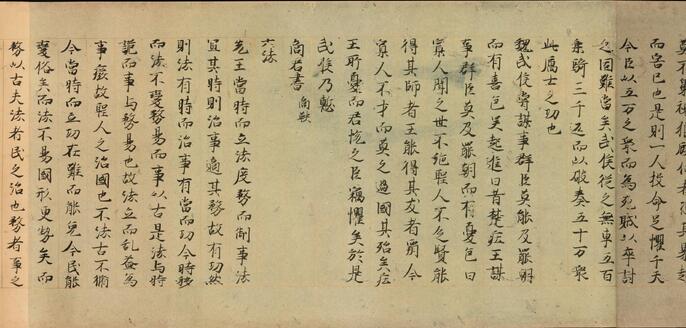 莫不梟視狼顧何者恐其暴起
而害己也是則一人投命足懼千夫
今臣以五万之衆而為死賊以率討
之固難當矣武侯從之無車五百
乘騎三千匹而以破秦五十万衆
此厲士之功也
魏武侯嘗謀事群臣莫能及罷朝
而有喜色吳起進曰昔楚莊王謀
事群臣莫及罷朝而有憂色曰
寡人聞之世不絶聖人不乏賢能
得其師者王能得其友者霸今
寡人不才而莫之過國其殆矣莊
王所憂而君悅之臣竊懼矣於是
武侯乃慙
商君書 商鞅
六法
先王當時而立法度務而制事法
宜其時則治事適其務故有功然
則法有時而治事有當而功今時移
而法不變務易而事以古是法与時
詭而事与務易也故法立而乱益為
事廢故聖人之治國也不法古不循
今當時而立功在難而能免今民能
變俗矣而法不易國形更勢矣而
務以古夫法者民之治也務者事之